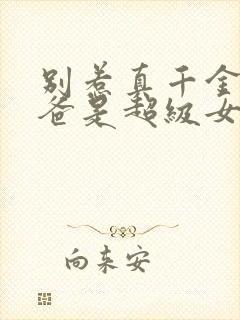 别惹真千金
爸是超级女
向来安